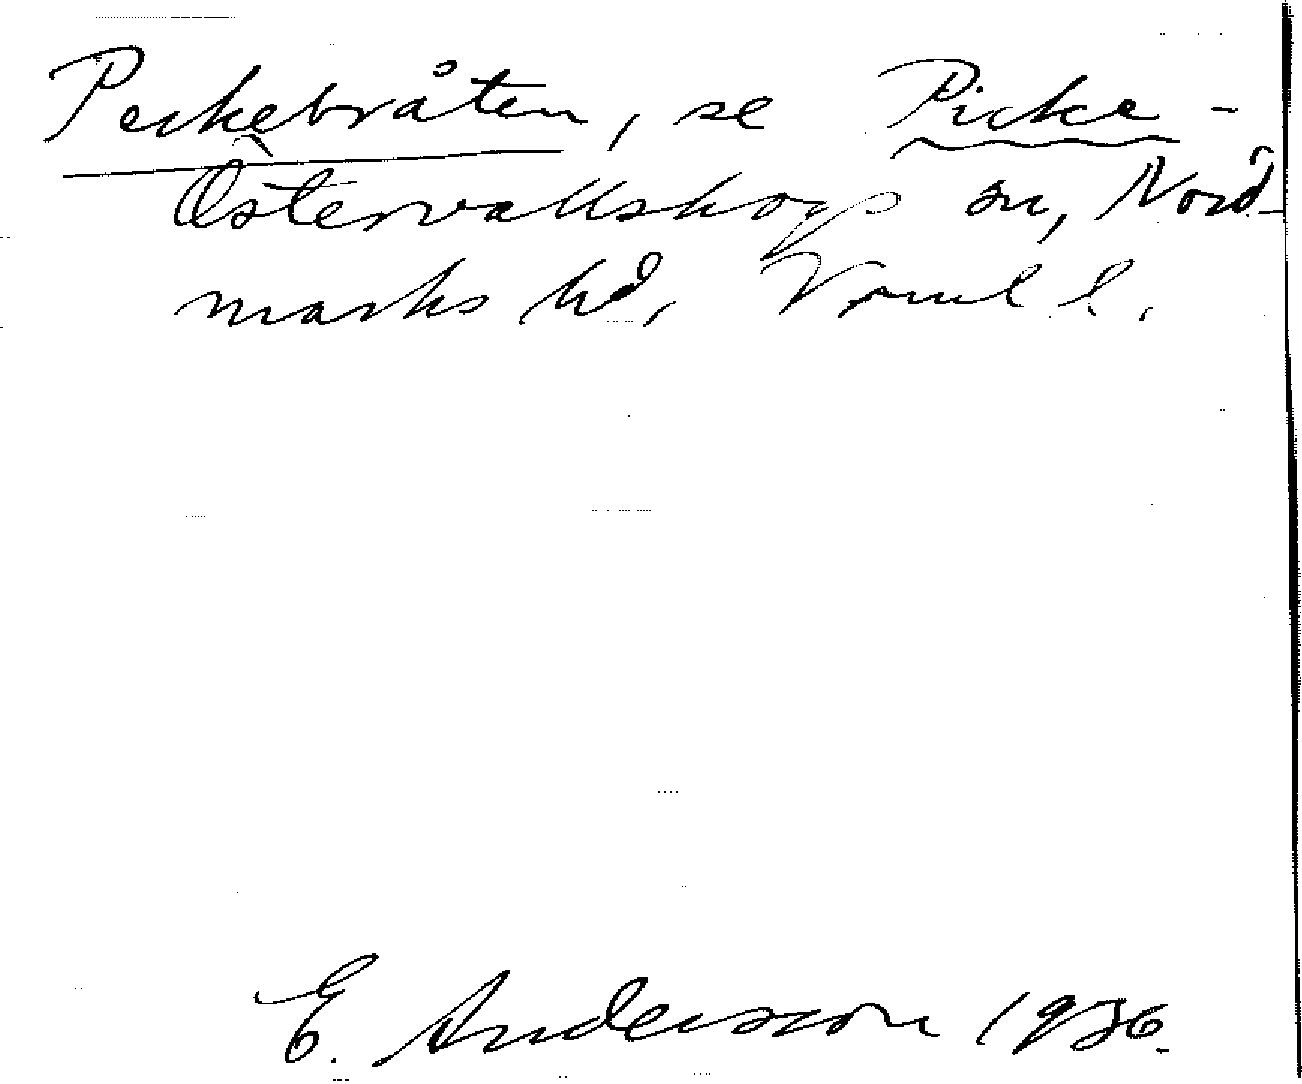 Peckebråten, se Picke-
Östervallskogs sn, Nord-
marks hd, Vrml l.
E. Anderson 1936.